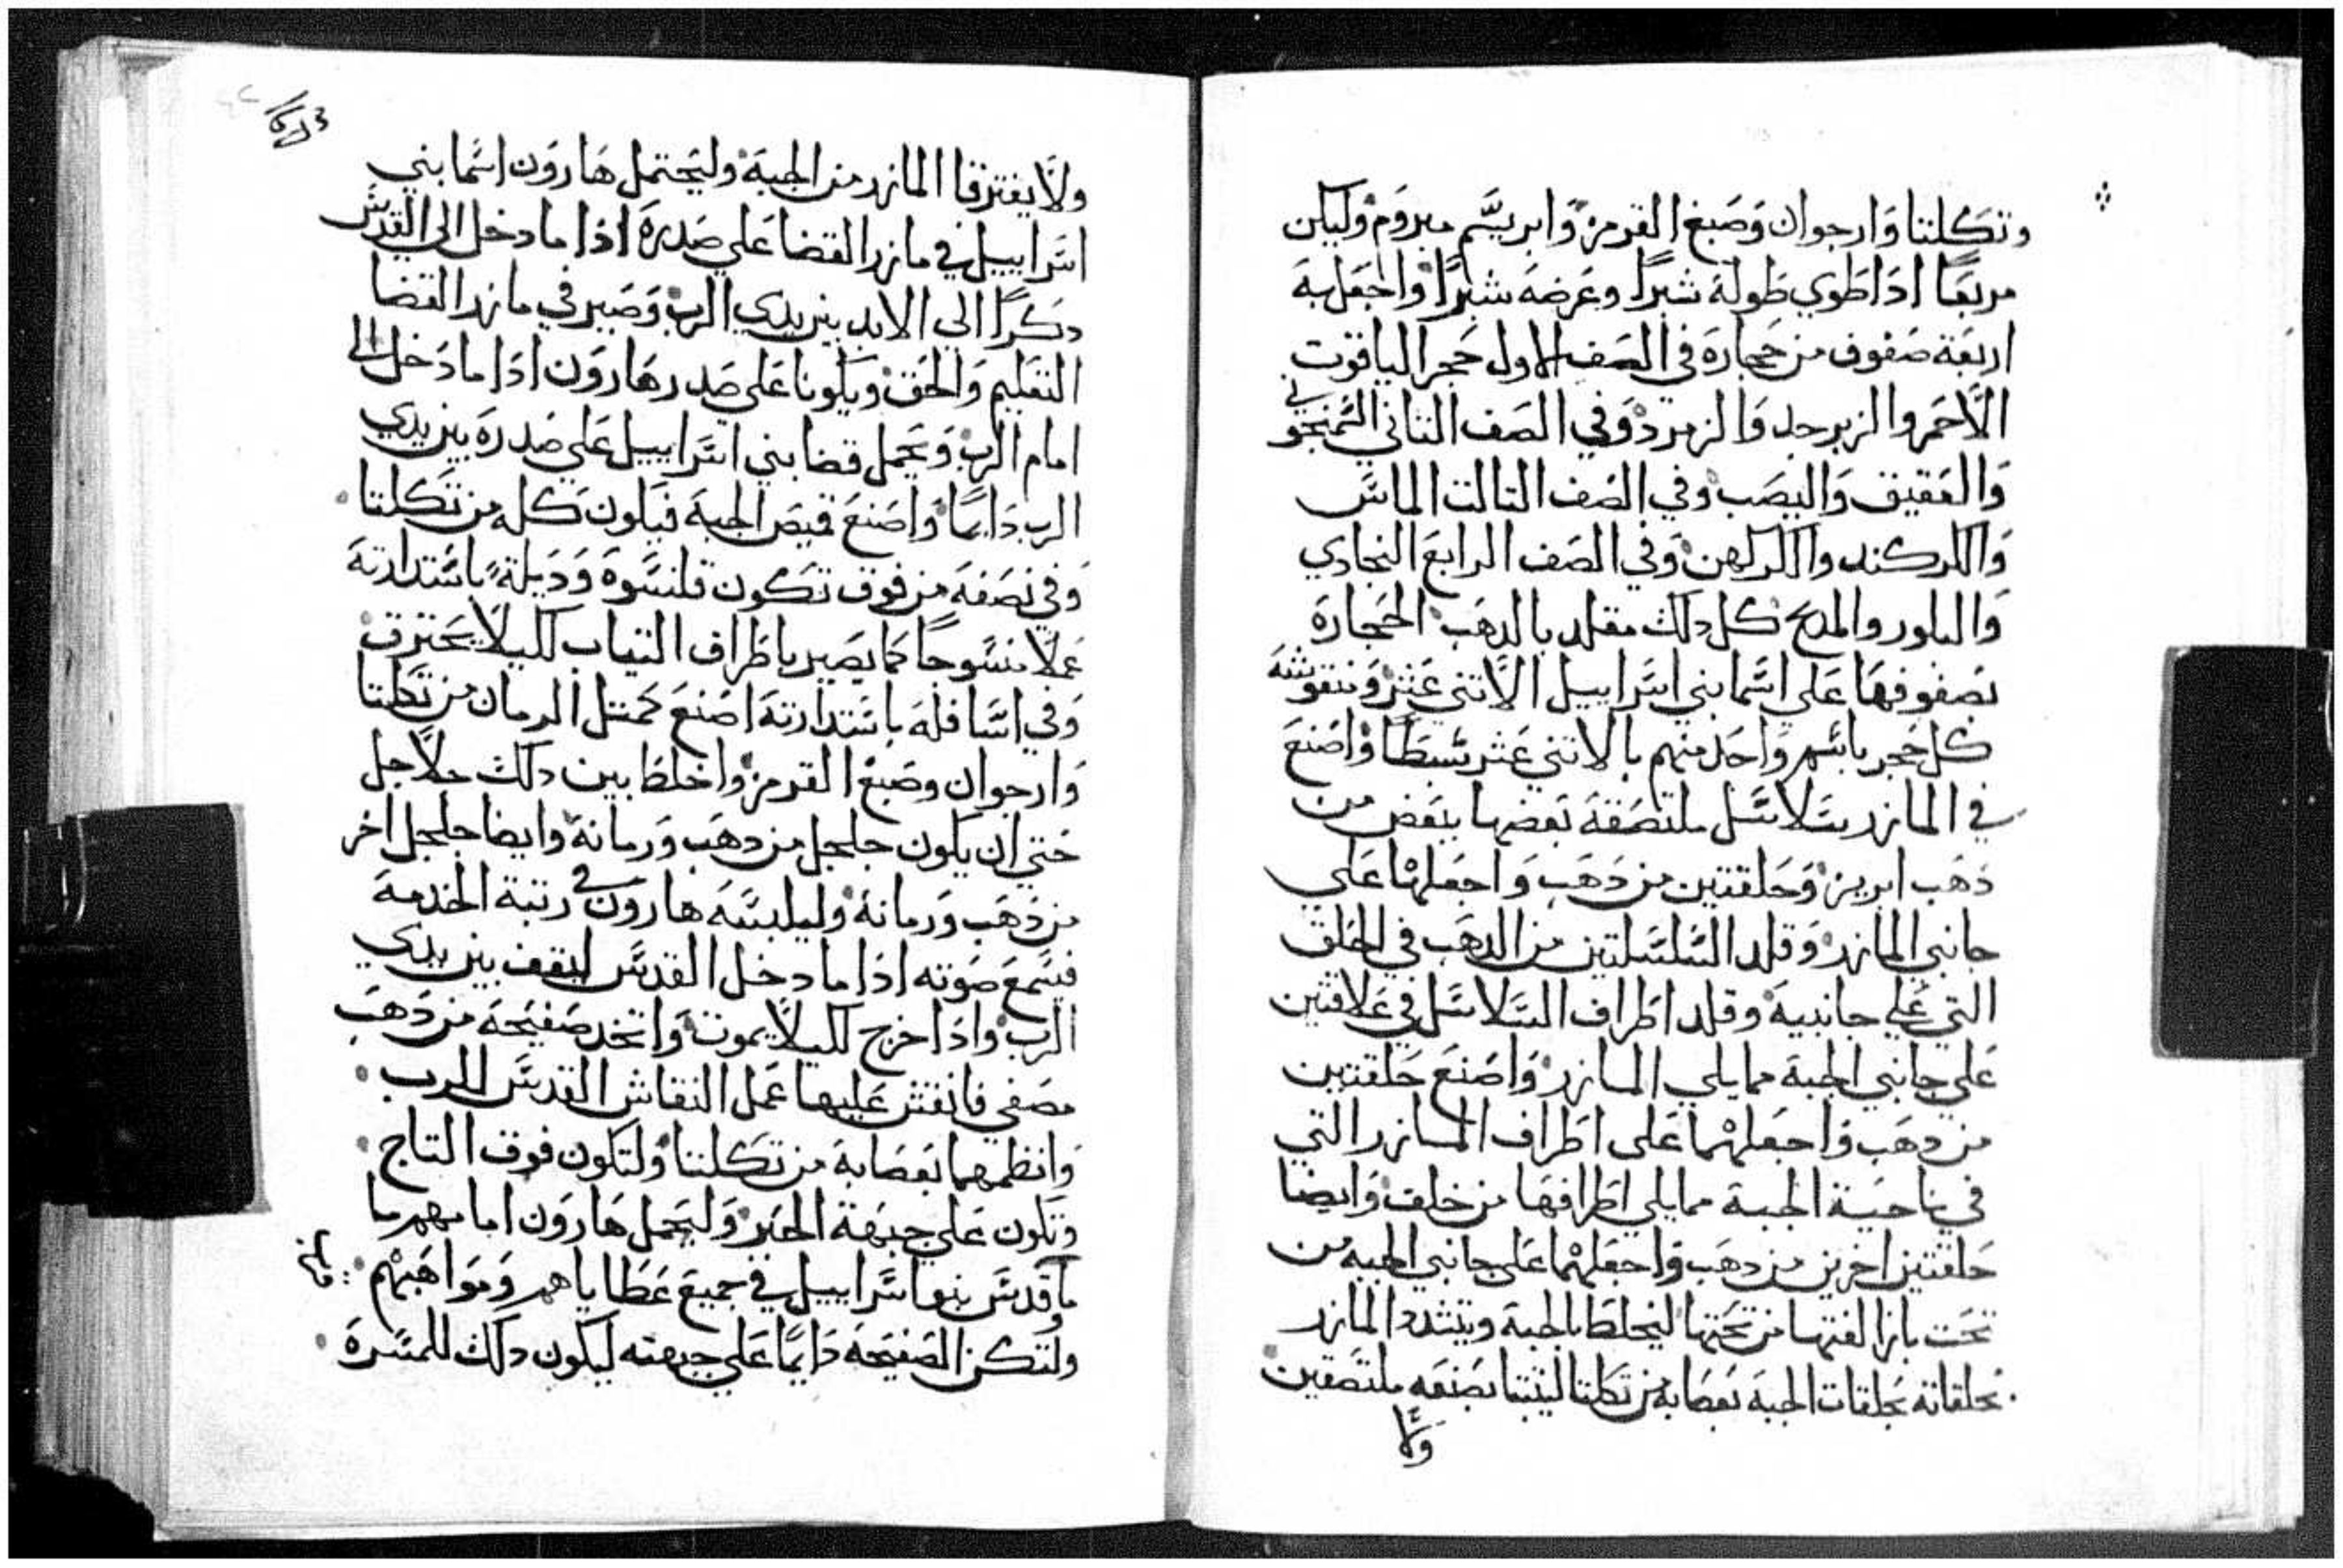 وتكلتا وارجوان وصبغ القرمز وابريسم مبروم وليكن
مربعا اذا طوي طوله شبرا وعرضه شبرا واجعل به
اربعة صفوف من حجاره في الصف الاول حجر الياقوت
الاحمر والزبرجد والزمرد وفي الصف الثاني
والعقيق واليصب وفي الصف التالت الماس
والكركند والكركهن وفي الصف الرابع النجادي
والبلور والمدع كل دلك مقلد بالدهب الحجاره
بصفوفها علي اسما بني اسراييل الاتني عشر ومنقوشه
كل حجر باسم واحد منهم بالاتني عشر سبطا واصنع
في المازر سلاسل ملتصقه بعضها ببعض من
دهب ابريز وحلقتين من دهب واجعلهما علي
جانبي المازر وقلد السلسلتين من الدهب في الحلق
التي علي جانبيه وقلد اطراف السلاسل في علاقتين
علي جانبي الجبة مما يلي المازر واصنع حلقتين
من دهب واجعلهما علي اطراف المازر التي
في ناحية الجبة مما يلي اطرافها من خلف وايضا
حلقتين اخرين من دهب واجعلهما علي جانبي الجبه من
تحت بازا الفتها من تحتها ليخلط بالجبة ويتشدد المازر
بحلقاته بحلقات الجبة بعصابه من تكلتا ليثبتا بصنعه ملتصقين
ولا
ولا يفترقا المازر من الجبة وليحتمل هارون اسما بني
اسراييل في مازر القضا علي صدره اذا ما دخل الي القدس
دكرا الي الابد بين يدي الرب وصير في مازر القضا
التعليم والحق ويكونا علي صدر هارون اذا ما دخل الي
امام الرب ويحمل قضا بني اسراييل علي صدره بين يدي
الرب دايما واصنع قميص الجبة فيكون كله من تكلتا
وفي نصفه من فوق تكون قلنسوة وديلة باستدارته
عملا منسوجا كما يصير باطراف التياب لكيلا يحترق
وفي اسافله باستدارته اصنع كمتل الرمان من تكلتا
وارجوان وصبغ القرمز واخلط بين دلك جلاجل
حتي ان يكون جلجل من دهب ورمانة وايضا جلجل اخر
من دهب ورمانة وليلبسه هارون في رتبة الخدمة
فيسمع صوته اذا ما دخل القدس ليقف بين يدي
الرب واذا خرج لكيلا يموت واتخد صفيحة من دهب
مصفي فانقش عليها عمل النقاش القدس للرب
وانظمهما بعصابة من تكلتا ولتكون فوق التاج
وتكون علي جبهة الحبر وليحمل هارون امامهم ما
ما قدس بنو اسراييل في جميع عطاياهم ومواهبهم
ولتكن الصفيحة دايما علي جبهته ليكون دلك للمسرة